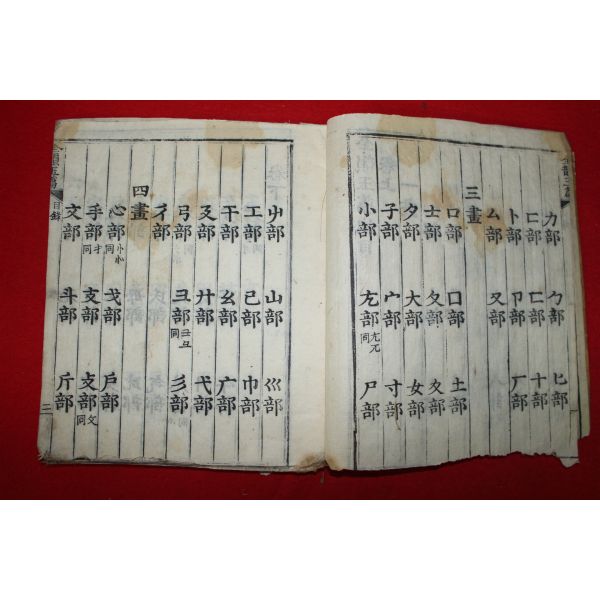 力部 勹部 匕部
匚部 匸部 十部
卜部 卩部 厂部
厶部 又部
三畫
口部 囗部 土部
士部 夂部 夊部
夕部 大部 女部
子部 宀部 寸部
小部 尢部尣兀同 尸部
屮部 山部 巛部
工部 己部 巾部
干部 幺部 广部
廴部 廾部 弋部
弓部 彐部同 彡部
彳部
四畫
心部忄㣺同 戈部 戶部
手部扌同 支部 攴部攵同
文部 斗部 斤部
全韻玉篇 目錄 二